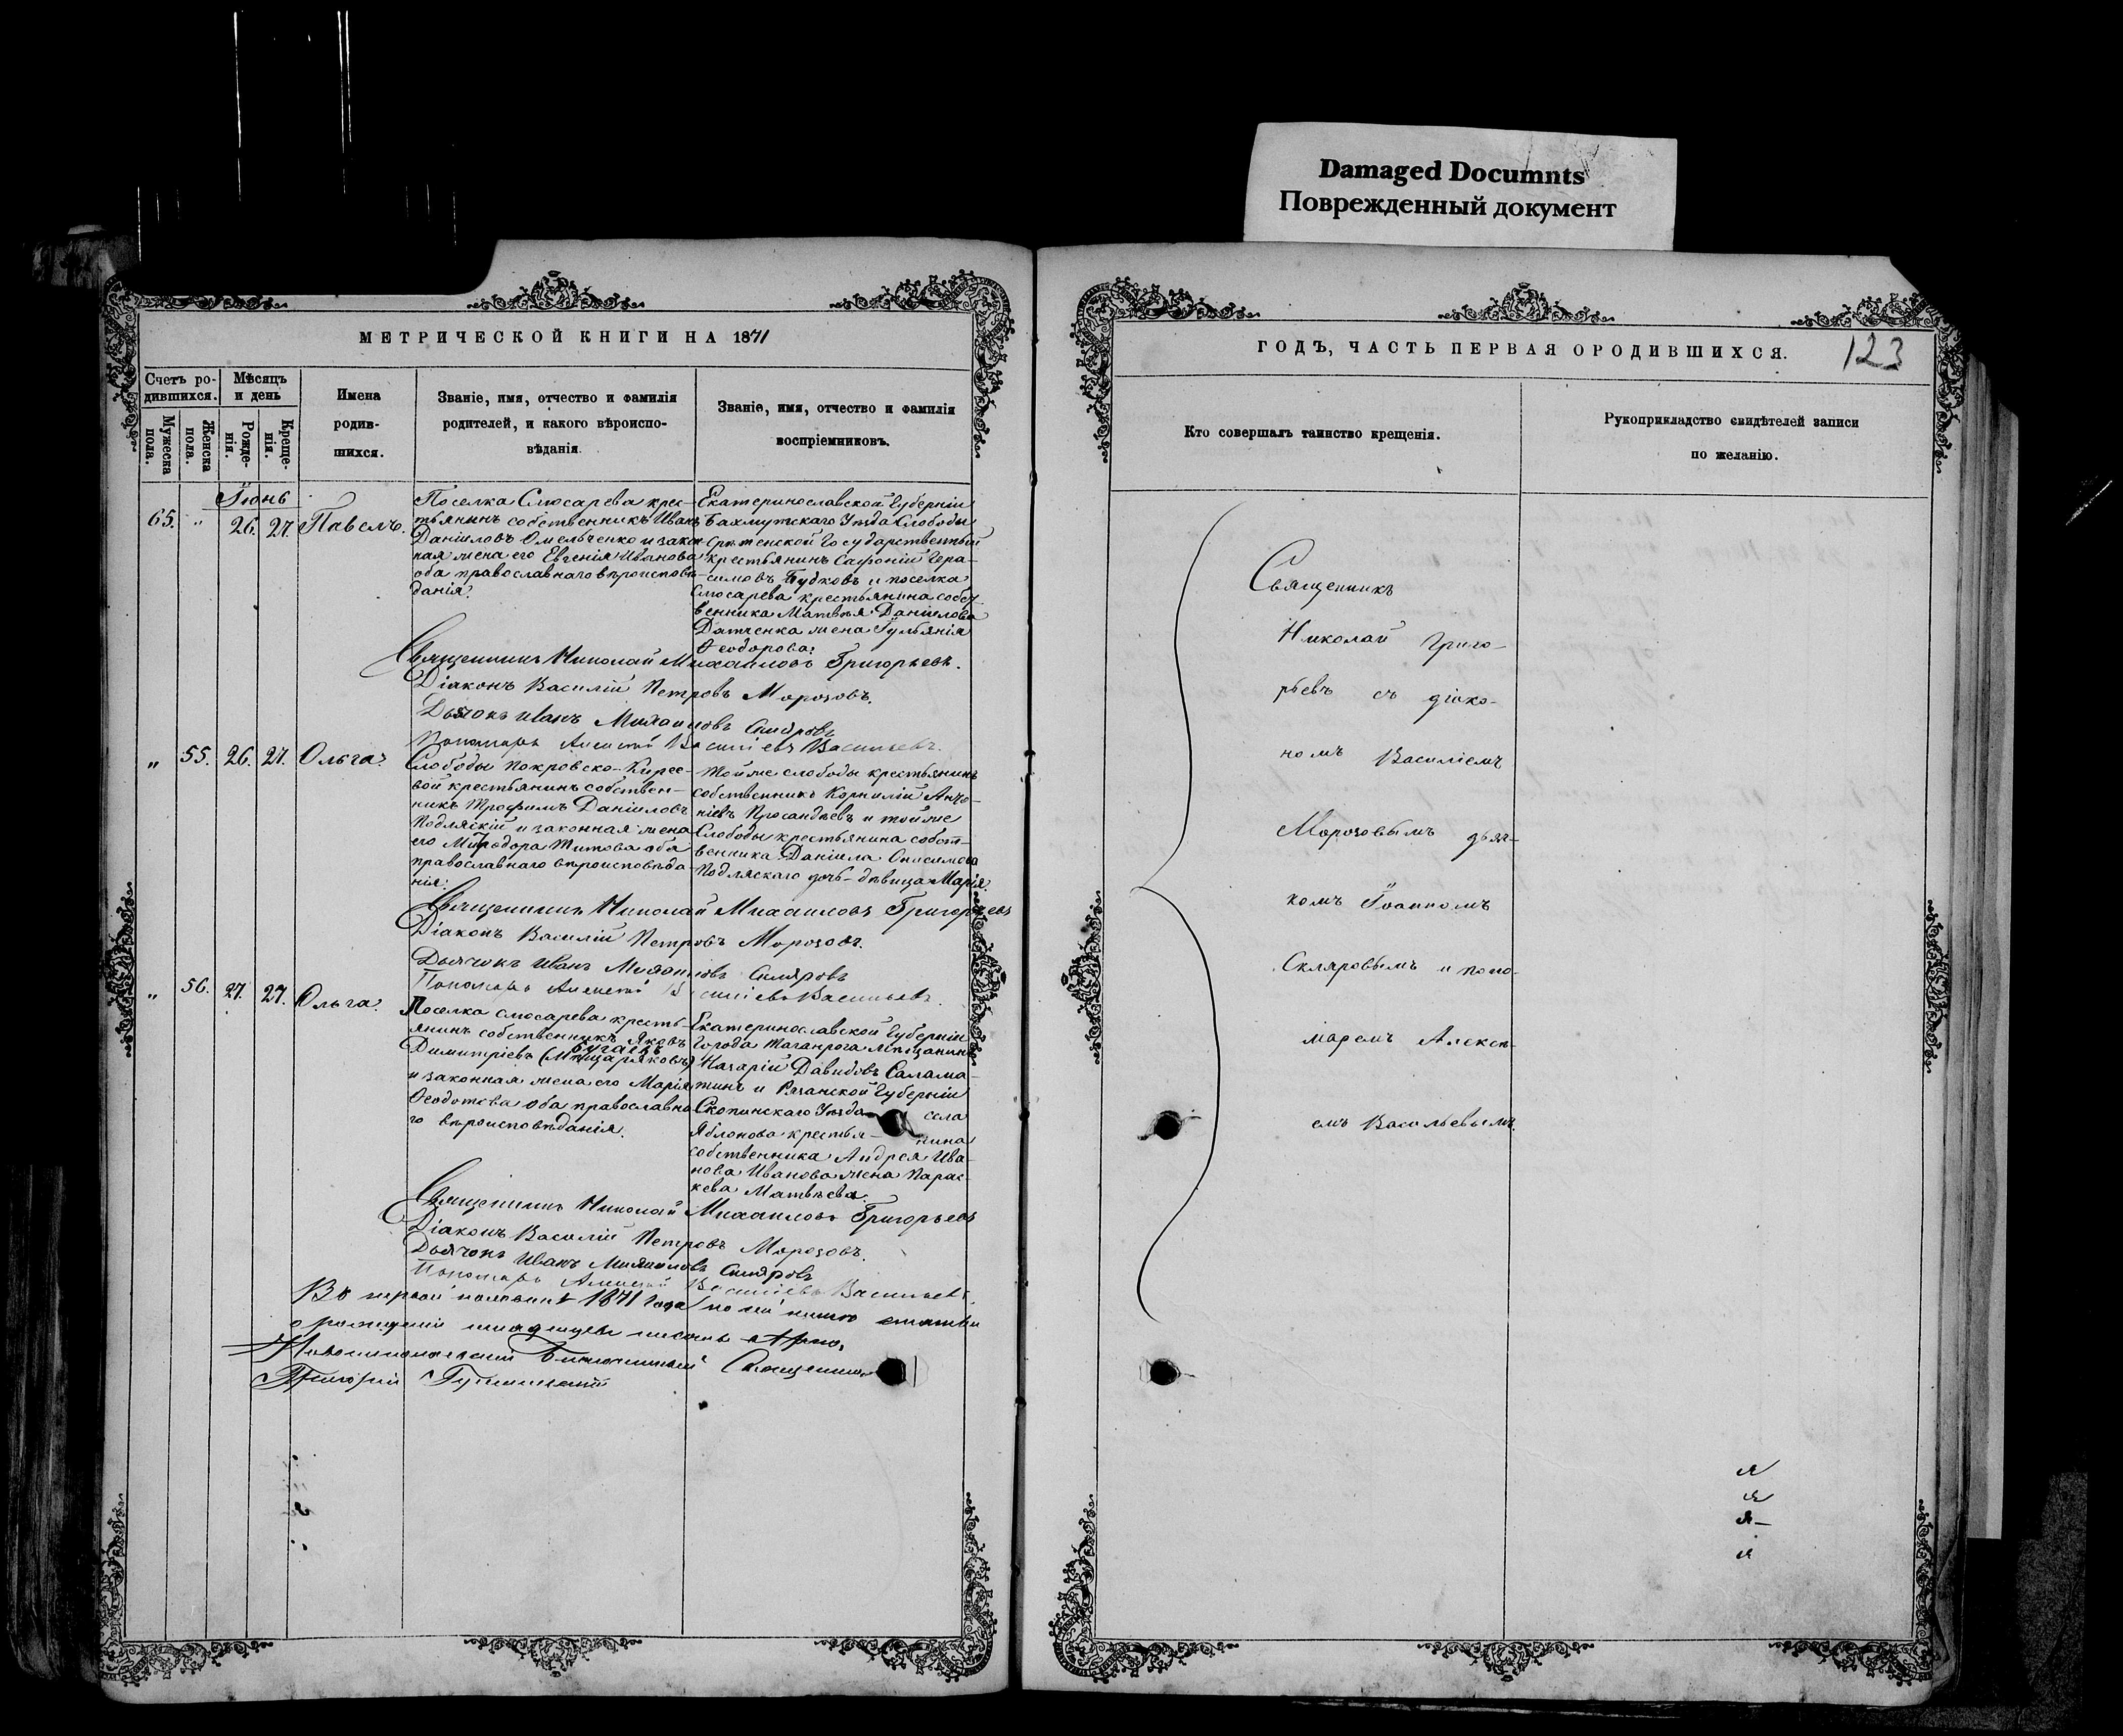 Damaged Documnts
Поврежденный документ
МЕТРИЧЕСКОЙ КНИГИ НА 1871
Счетъ ро-
дившихся.
Мужеска
пола.
Женска
пола.
Мѣсяцъ
и день
Рожде-
нія.
Креще-
нія.
Имена
родив-
шихся.
Званіе, имя, отчество и фамилія
родителей, и какого вѣроиспо-
вѣданія.
Званіе, имя, отчество и фамилія
воспріемниковъ.
Іюнь
65. „ 26. 27. Павелъ.
Поселка Слюсарева крес-
тьянинъ собственникъ Иванъ
Даніиловъ Омельченко и закон-
ная жена его Евгенія Иванова
оба православнаго вѣроисповѣ-
данія.
Екатеринославской Губерніи
Бахмутскаго Уѣзда Слободы
Государственный
крестьянинъ Сафоній Гера-
симовъ Будковъ и поселка
Слюсарева крестьянина собст-
венника Матвѣя Даніилова
Датченка жена Іульянія
Ѳеодорова.
Священникъ Николай Михаиловъ Григорьевъ.
Діаконъ Василій Петровъ Морозовъ.
Дьячокъ Иванъ Скляровъ
Пономарь Алексѣй Васильевъ Васильевъ.
„ 55. 26. 27. Ольга.
Слободы Покровско-Кирее-
вой крестьянинъ собствен-
никъ Трофимъ Даніиловъ
Подляскій и законная жена
его Митродора Титова оба
православнаго вѣроисповѣда-
нія.
Тойже слободы крестьянинъ
собственникъ Корнилій
и тойже
Слободы крестьянина собст-
венника Даніила Онисимова
Подляскаго дочь-дѣвица Марія.
Священникъ Николай Михаиловъ Григорьевъ
Діаконъ Василій Петровъ Морозовъ.
Дьячокъ Иванъ Скляровъ
Пономарь Алексѣй Васильевъ Васильевъ.
„ 56. 27. 27. Ольга.
Поселка Слюсарева кресть-
янинъ собственникъ Яковъ
Бугаевъ
Димитріевъ
и законная жена его Марія
Ѳеодотова оба православна-
го вѣроисповѣданія.
Екатеринославской Губерніи
Города Таганрога мѣщанинъ
Назарій Давидовъ Салама-
тинъ и Рязанской Губерніи
Скопинскаго Уѣзда села
Яблонова крестья- нина
собственника Андрея Ива-
нова Иванова жена Парас-
кева Матвѣева.
Священникъ Николай Михаиловъ Григорьевъ
Діаконъ Василій Петровъ Морозовъ.
Дьячокъ Иванъ Скляровъ
Пономарь Алексѣй Васильевъ Васильевъ.
Въ первой половинѣ 1871 года по сей книгѣ статьи
о рожденіи младенцевъ писаны вѣрно.
Благочинный Священникъ
Григорій
ГОДЪ, ЧАСТЬ ПЕРВАЯ О РОДИВШИХСЯ.
123
Кто совершалъ таинство крещенія.
Рукоприкладство свидѣтелей записи
по желанію.
Священникъ
Николай Григо-
рьевъ съ діако-
номъ Василіемъ
Морозовымъ дьяч-
комъ Іоанномъ
Скляровымъ и поно-
маремъ Алексѣ-
емъ Васильевымъ.